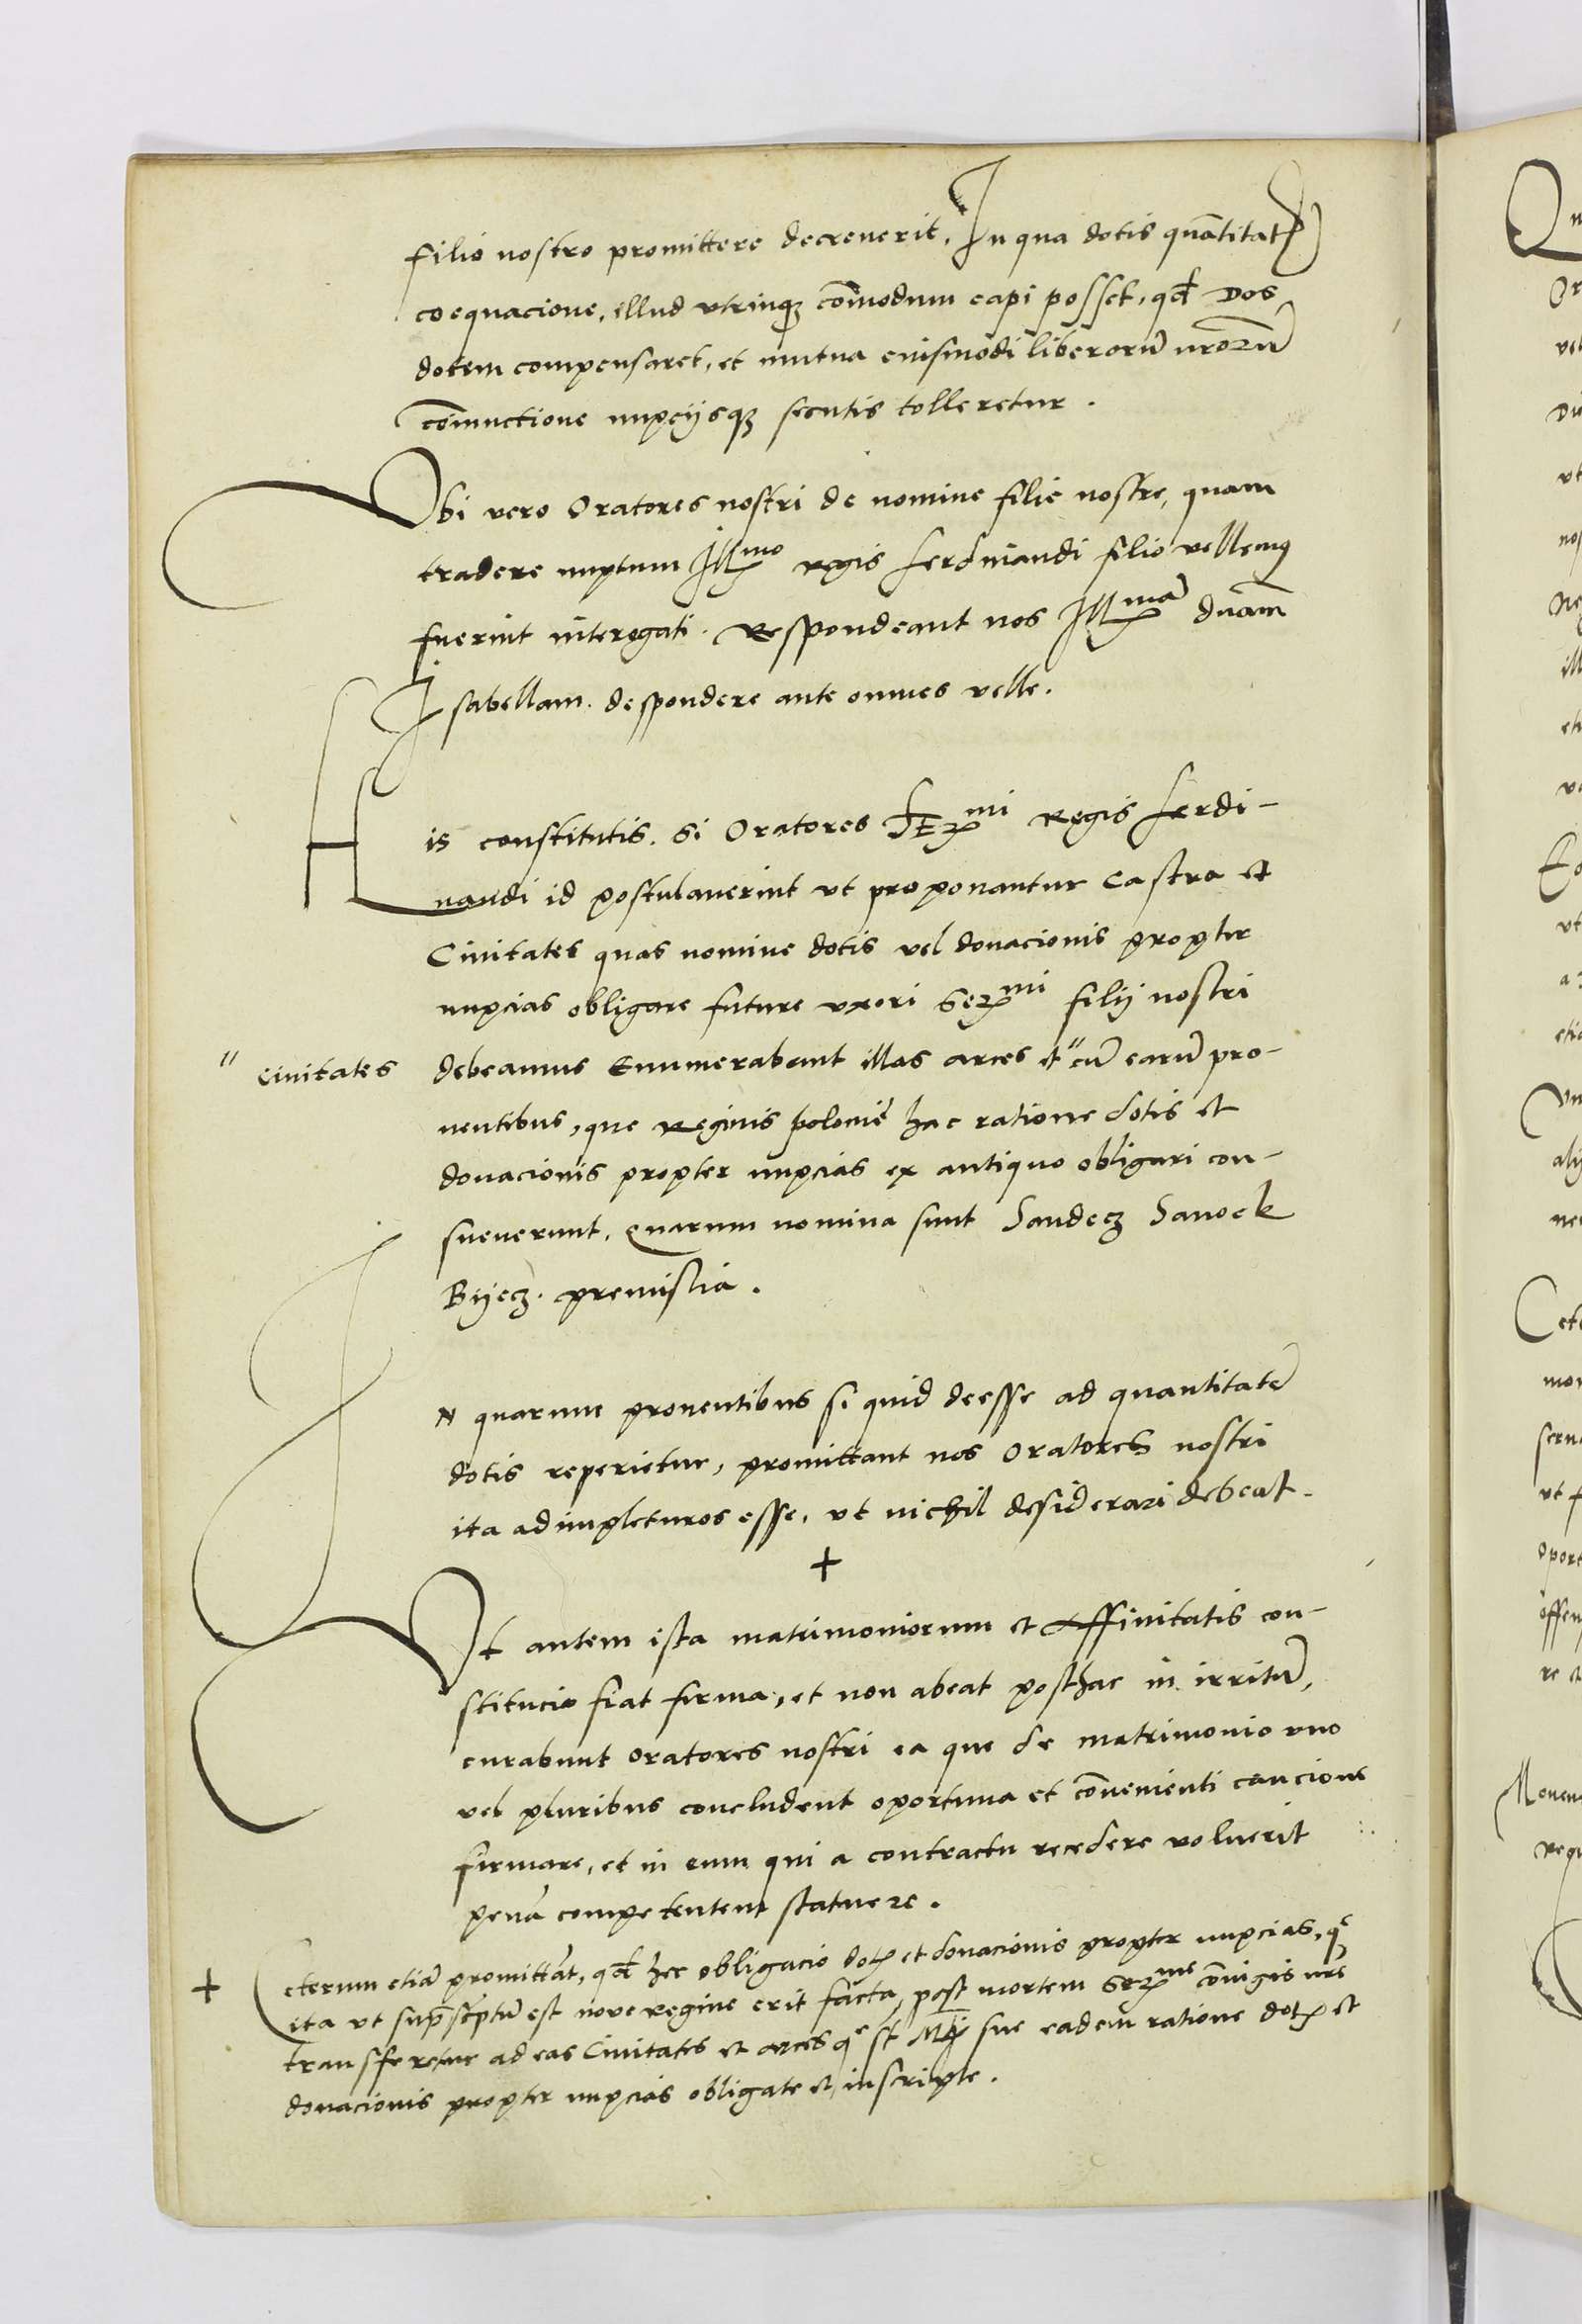 filio nostro promittere decreverit, In qua dotis quãtitatꝭ
coequacione, illud utrinqȝ com̃odum capi posset, qđ Dos
dotem compensaret, et mutua eiusmodi liberorũ nrorũ
com̃ictione nupcijsqȝ secutis tolleretur.
Ubi vero Oratores nostri de nomine filie nostre, quam
tradere nuptum Ill^mo regis Ferdinandi filio vellemꝰ
fuerint interogati. Respondeant nos Ill^mã dnãm
Isabellam. despondere ante omnes velle.
His constitutis. Si Oratores Ser^mi Regis Ferdi-
nandi id postulaverint ut proponantur Castra et
Civitates quas nomine dotis vel donacionis propter
nupcias obligare future uxori Ser^mi filij nostri
debeamus Enumerabunt illas arces et " cũ earũ pro-
" civitates
ventibus, que Reginis polonie hac ratione dotis et
donacionis propter nupcias ex antiquo obligari con-
sueverunt, quarum nomina sunt Sandecz Sanoek
Byecz. premislia.
IN quarum proventibus si quid deesse ad quantitatẽ
dotis reperietur, promittant nos Oratores nostri
ita adimpleturos esse, ut nichil desiderari debeat.
+
Ut autem ista matrimoniorum et Affinitatis con-
stitucio fiat firma, et non abeat posthac in irritũ,
curabunt oratores nostri ea que de matrimonio uno
vel pluribus concludent oportuna et cõvenienti caucione
firmare, et in eum qui a contractu recedere voluerit
penã competentem statuere.
+ Ceterum etiã promittãt, qđ hec obligacio dotꝭ et donacionis propter nupcias, q^e
ita ut suprascriptũ est nove regine erit facta, post mortem Ser^me cõiugis nre
transferetur ad eas Civitates et arces q^e st Mti sue eadem ratione dotꝭ et
donacionis propter nupcias obligate et inscripte.